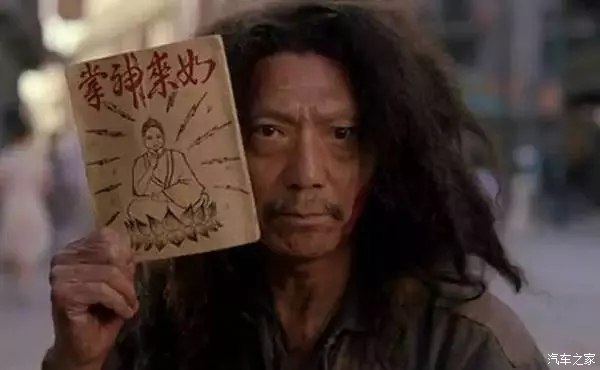 如來神掌
汽车之家